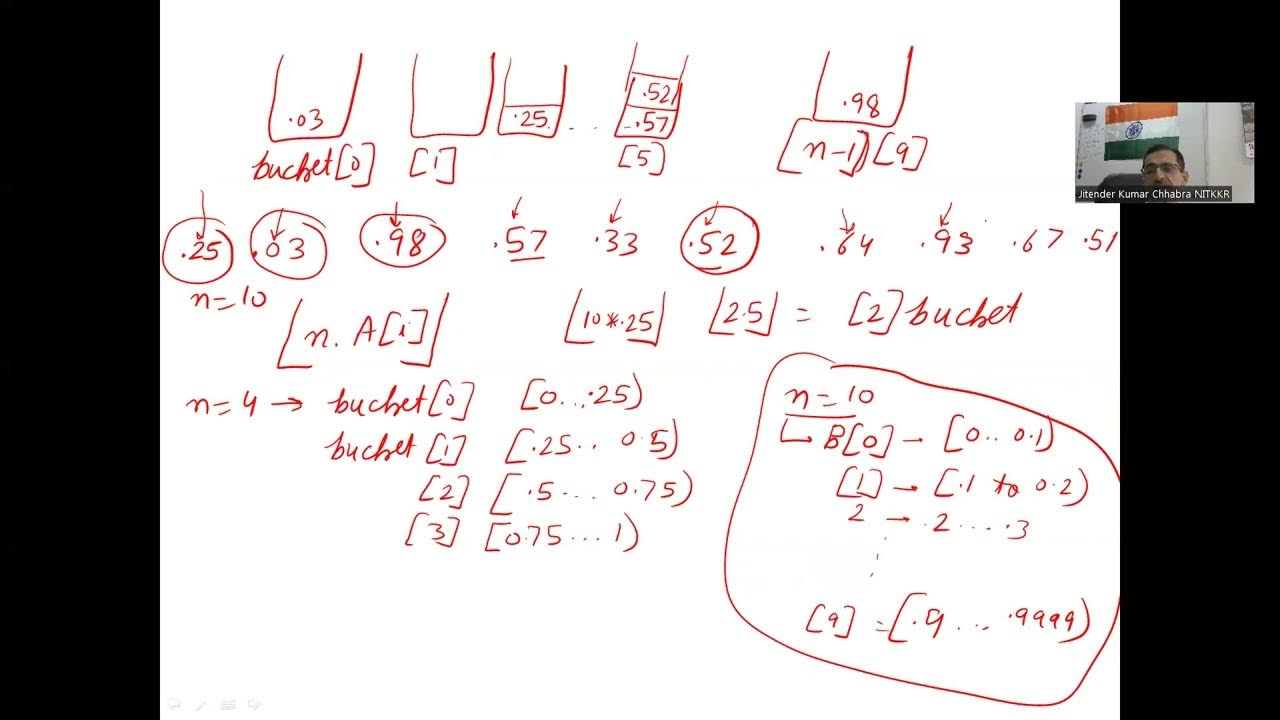 .52
.03 .25 ... .57 .98
bucket[0] [1] [5] [n-1] [9]
Jitender Kumar Chhabra NITKKR
.25 .03 .98 .57 .33 .52 .64 .93 .67 .51
n=10
⌊n. A[i]⌋ ⌊10*.25⌋ ⌊2.5⌋ = [2] bucket
n=4 → bucket[0] [0...25)
bucket [1] [.25.. 0.5)
[2] [.5... 0.75)
[3] [0.75...1)
n=10
↳ B[0] - [0..0.1)
[1] → [.1 to 0.2)
2 → .2....3
[9] = [.9 ... .9999)